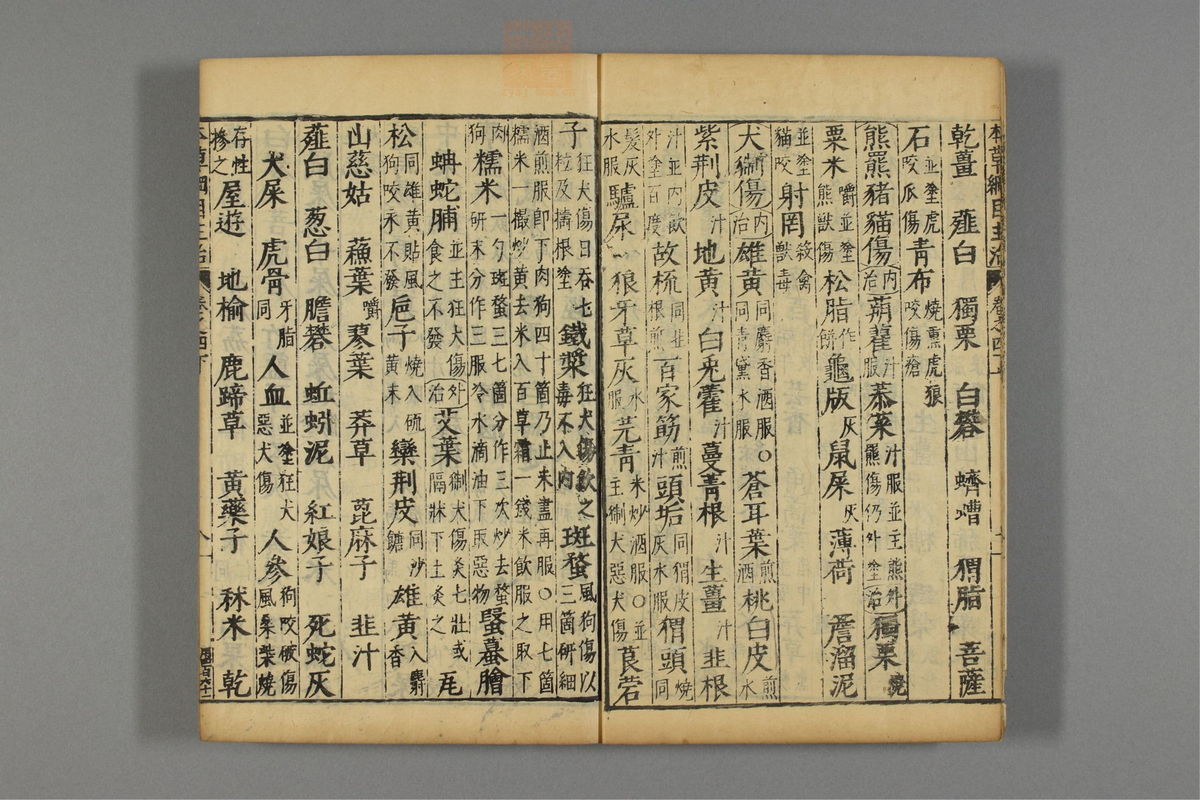 本草綱目主治 卷之四下
乾薑 薤白 獨栗 白礬 蠐螬 猬脂 菩薩
石並塗虎咬爪傷 青布燒熏虎狼咬傷瘡
熊羆豬貓傷內治 蒴藋汁服 菾菜汁服並主熊傷仍外塗 外治 獨栗燒
粟米嚼並塗熊獸傷 松脂作餅 龜版灰 鼠屎灰 薄荷 詹溜泥
並塗貓咬 射罔殺禽獸毒
犬猘傷內治 雄黃同麝香酒服○同青黛水服 蒼耳葉煎酒 桃白皮煎水
紫荊皮汁 地黃汁 白兔藿汁 蔓菁根汁 生薑汁 韭根
汁並內飲外塗百度 故梳同韭根煎 百家筯煎汁 頭垢同猬皮灰水服 猬頭燒同
髮灰水服 驢尿 狼牙草灰水服 芫青米炒酒服○並主猘犬惡犬傷 莨菪
子狂犬傷日吞七粒及擣根塗 鐵漿狂犬傷飲之毒不入內 斑蝥風狗傷以三箇研細
酒煎服即下肉狗四十箇乃止未盡再服○用七箇糯米一撮炒黃去米入百草霜一錢米飲服之取下
肉狗 糯米一勺斑蝥三七箇分作三次炒去蝥研末分作三服冷水滴油下取惡物 蝦蟇膾
蚺蛇脯並主狂犬傷食之不發 外治 艾葉猘犬傷灸七壯或隔牀下土灸之 瓦
松同雄黃貼風狗咬永不發 巵子燒入硫黃末 欒荊皮同沙糖 雄黃入麝香
山慈姑 蘓葉嚼 蓼葉 莽草 蓖麻子 韭汁
薤白 葱白 膽礬 蚯蚓泥 紅娘子 死蛇灰
犬屎 虎骨牙脂同 人血並塗狂犬惡犬傷 人參狗咬破傷風桑柴燒
存性摻之 屋遊 地榆 鹿蹄草 黃藥子 秫米 乾
本草綱目主治 卷之四下